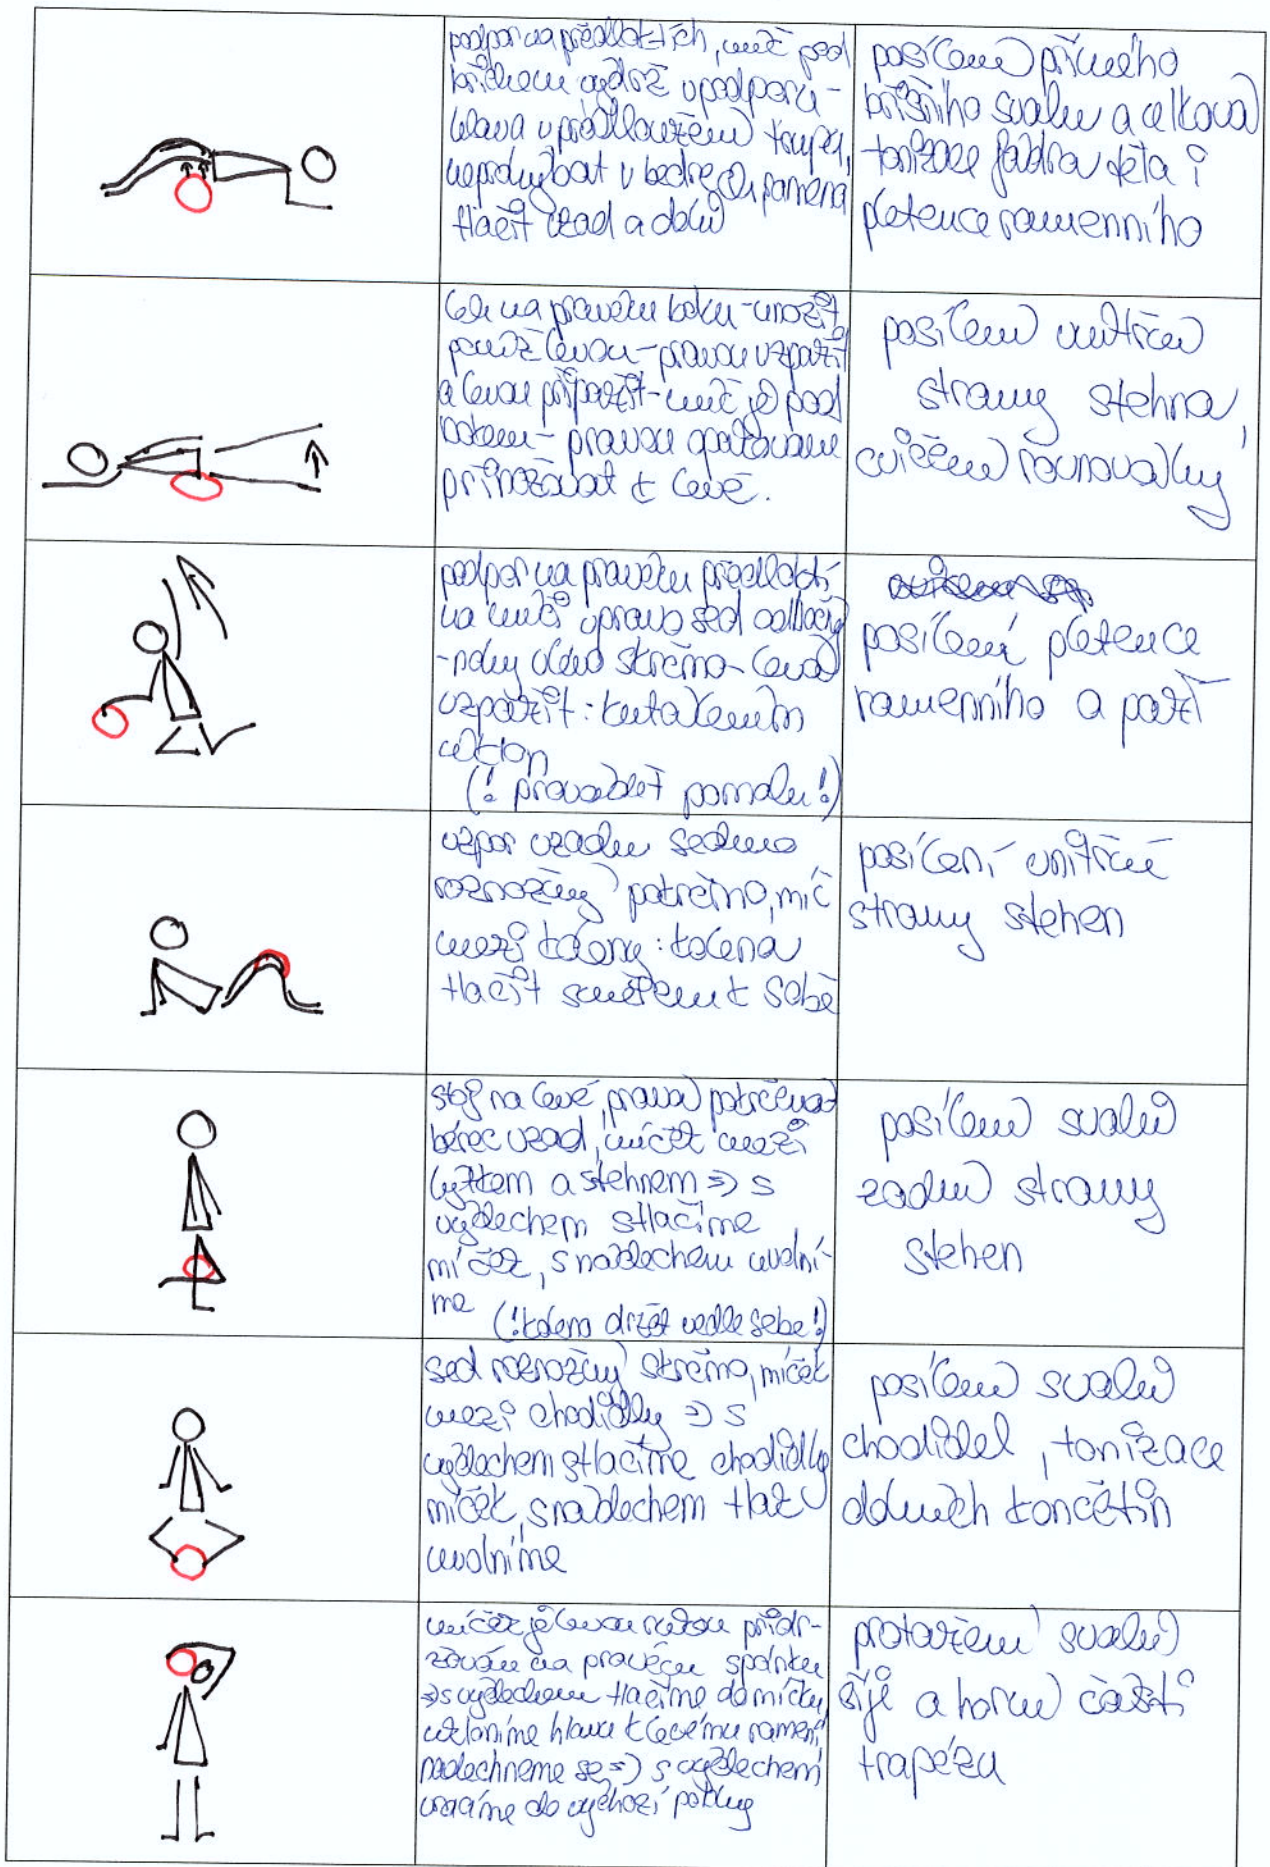 podpor na předloktích, míč pod
břichem výdrž v podporu -
hlava v prodloužení trupu,
neprohýbat v bedrech ramena
tlačit vzad a dolů
posílení přímého
břišního svalu a celková
tonizace jádra těla i
pletence ramenního
leh na pravém boku - unožit
poníž levou - pravou vzpažit
a levou připažit - míč je pod
bokem - pravou opakovaně
přinožovat k levé.
posílení vnitřní
strany stehna,
cvičení rovnováhy
podpor na pravém předloktí
na míči vpravo sed odbočný
- nohy vlevo skrčmo - levou
vzpažit : kutálením
úklon
(! provádět pomalu !)
posílení pletence
ramenního a paží
vzpor vzadu sedmo
roznožný pokrčmo, míč
mezi koleny : kolena
tlačit směrem k sobě
posílení vnitřní
strany stehen
stoj na levé, pravá pokrčená
bérec vzad, míček mezi
lýtkem a stehnem => s
výdechem stlačíme
míček, s nádechem uvolní-
me (! kolena držet vedle sebe !)
posílení svalů
zadní strany
stehen
sed roznožný skrčmo, míček
mezi chodidly => s
výdechem stlačíme chodidly
míček, s nádechem tlak
uvolníme
posílení svalů
chodidel, tonizace
dolních končetin
míček je levou rukou přidr-
žován na pravém spánku
=> s výdechem tlačíme do míčku,
ukloníme hlavu k levému rameni
nadechneme se => s výdechem
vracíme do výchozí polohy
protažení svalů
šíje a horní části
trapézu